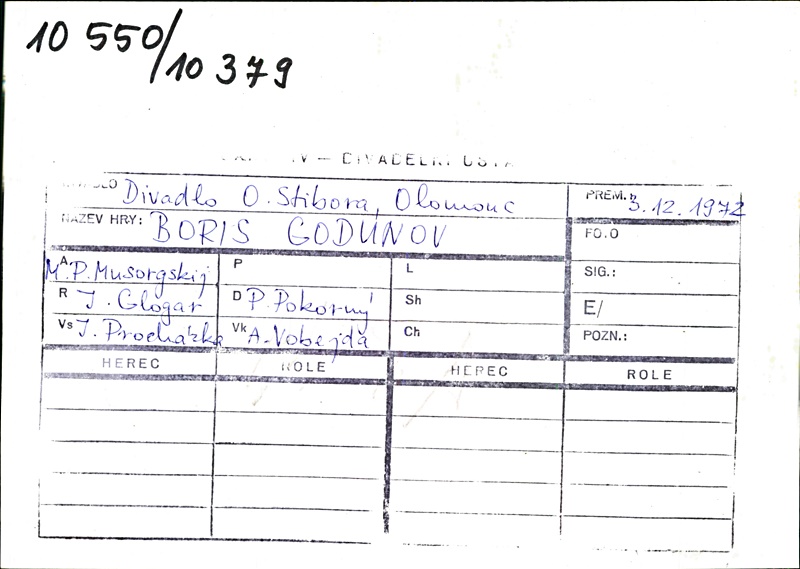 10 550/10 379
V — DIVADELNÍ ÚSTA
DIVADLO Divadlo O. Stibora, Olomouc PREM.: 3.12.1972
NÁZEV HRY: BORIS GODUNOV FO.O
A M.P. Musorgskij P L SIG.:
R J. Glogar D P. Pokorný Sh E/
Vs J. Procházka Vk A. Vobejda Ch POZN.:
HEREC ROLE HEREC ROLE